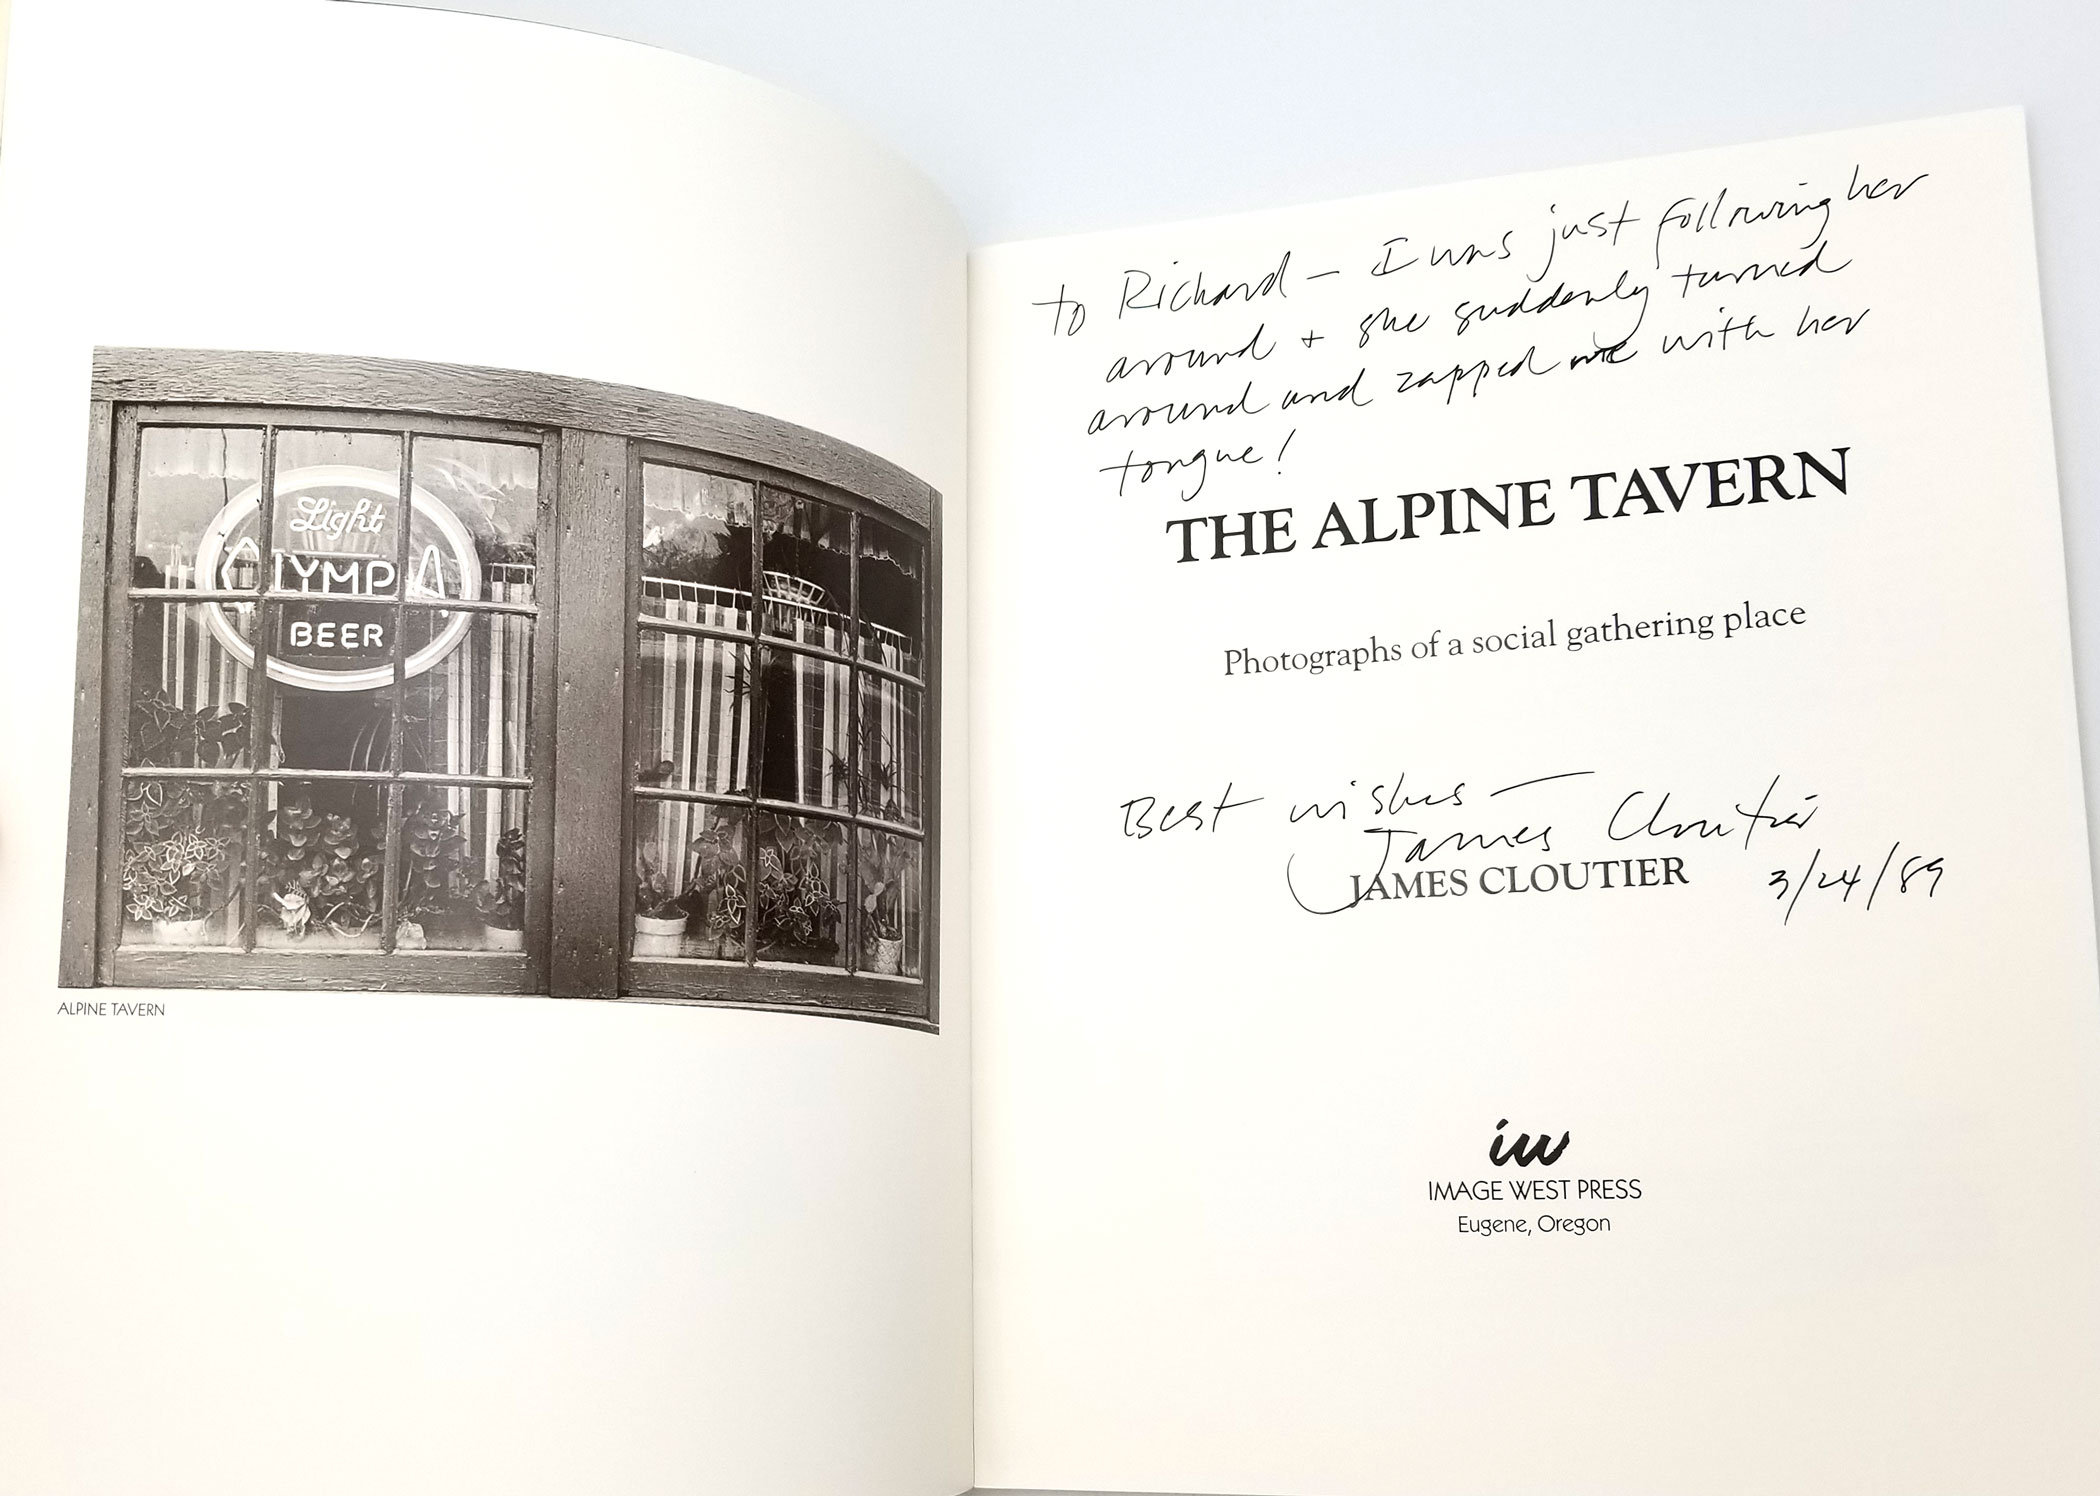 Light
OLYMPIA
BEER
ALPINE TAVERN
to Richard – I was just following her
around + she suddenly turned
around and zapped me with her
tongue!
THE ALPINE TAVERN
Photographs of a social gathering place
Best wishes –
James Cloutier
JAMES CLOUTIER
3/24/89
iw
IMAGE WEST PRESS
Eugene, Oregon